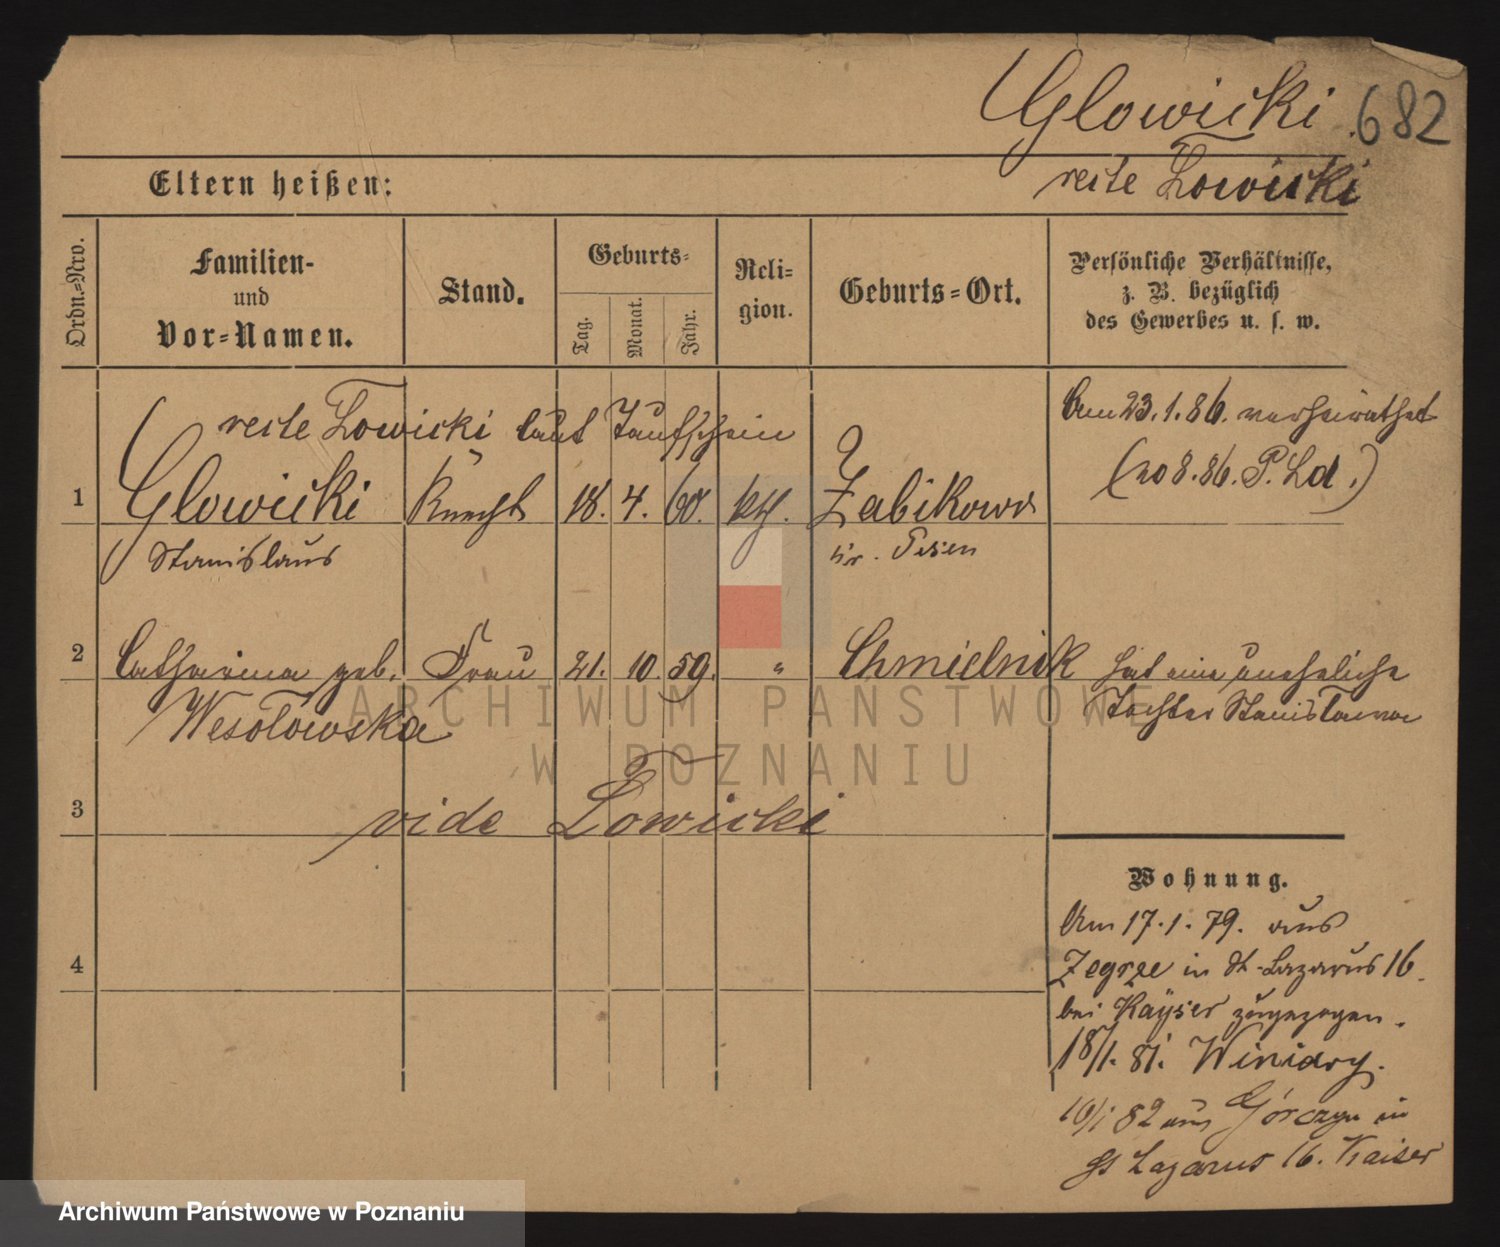 Glowicki 682
recte Łowicki
Eltern heißen:
Ordn.=Nro.
Familien-
und
Vor=Namen.
Stand.
Geburts=
Tag.
Monat.
Jahr.
Reli=
gion.
Geburts=Ort.
Persönliche Verhältnisse,
z. B. bezüglich
des Gewerbes u. s. w.
recte Łowicki laut Taufschein
Am 23.1.86. verheirathet
(no 8.86. P. Ld.)
1 Glowicki Knecht 18. 4. 60. kth. Zabikowo
Stanislaus Kr. Posen
2 Catharina geb. Frau 21. 10. 59. " Chmielnik hat eine uneheliche
Wesołowska Tochter Stanislawa
3 vide Łowicki
4
Wohnung.
Am 17.1.79. aus
Zegrze in St. Lazarus 16.
bei Kayser zugezogen.
18/1. 81. Winiary.
10/1 82 aus Górczyn in
St Lazarus 16. Kaiser
ARCHIWUM PAŃSTWOWE
W POZNANIU
Archiwum Państwowe w Poznaniu